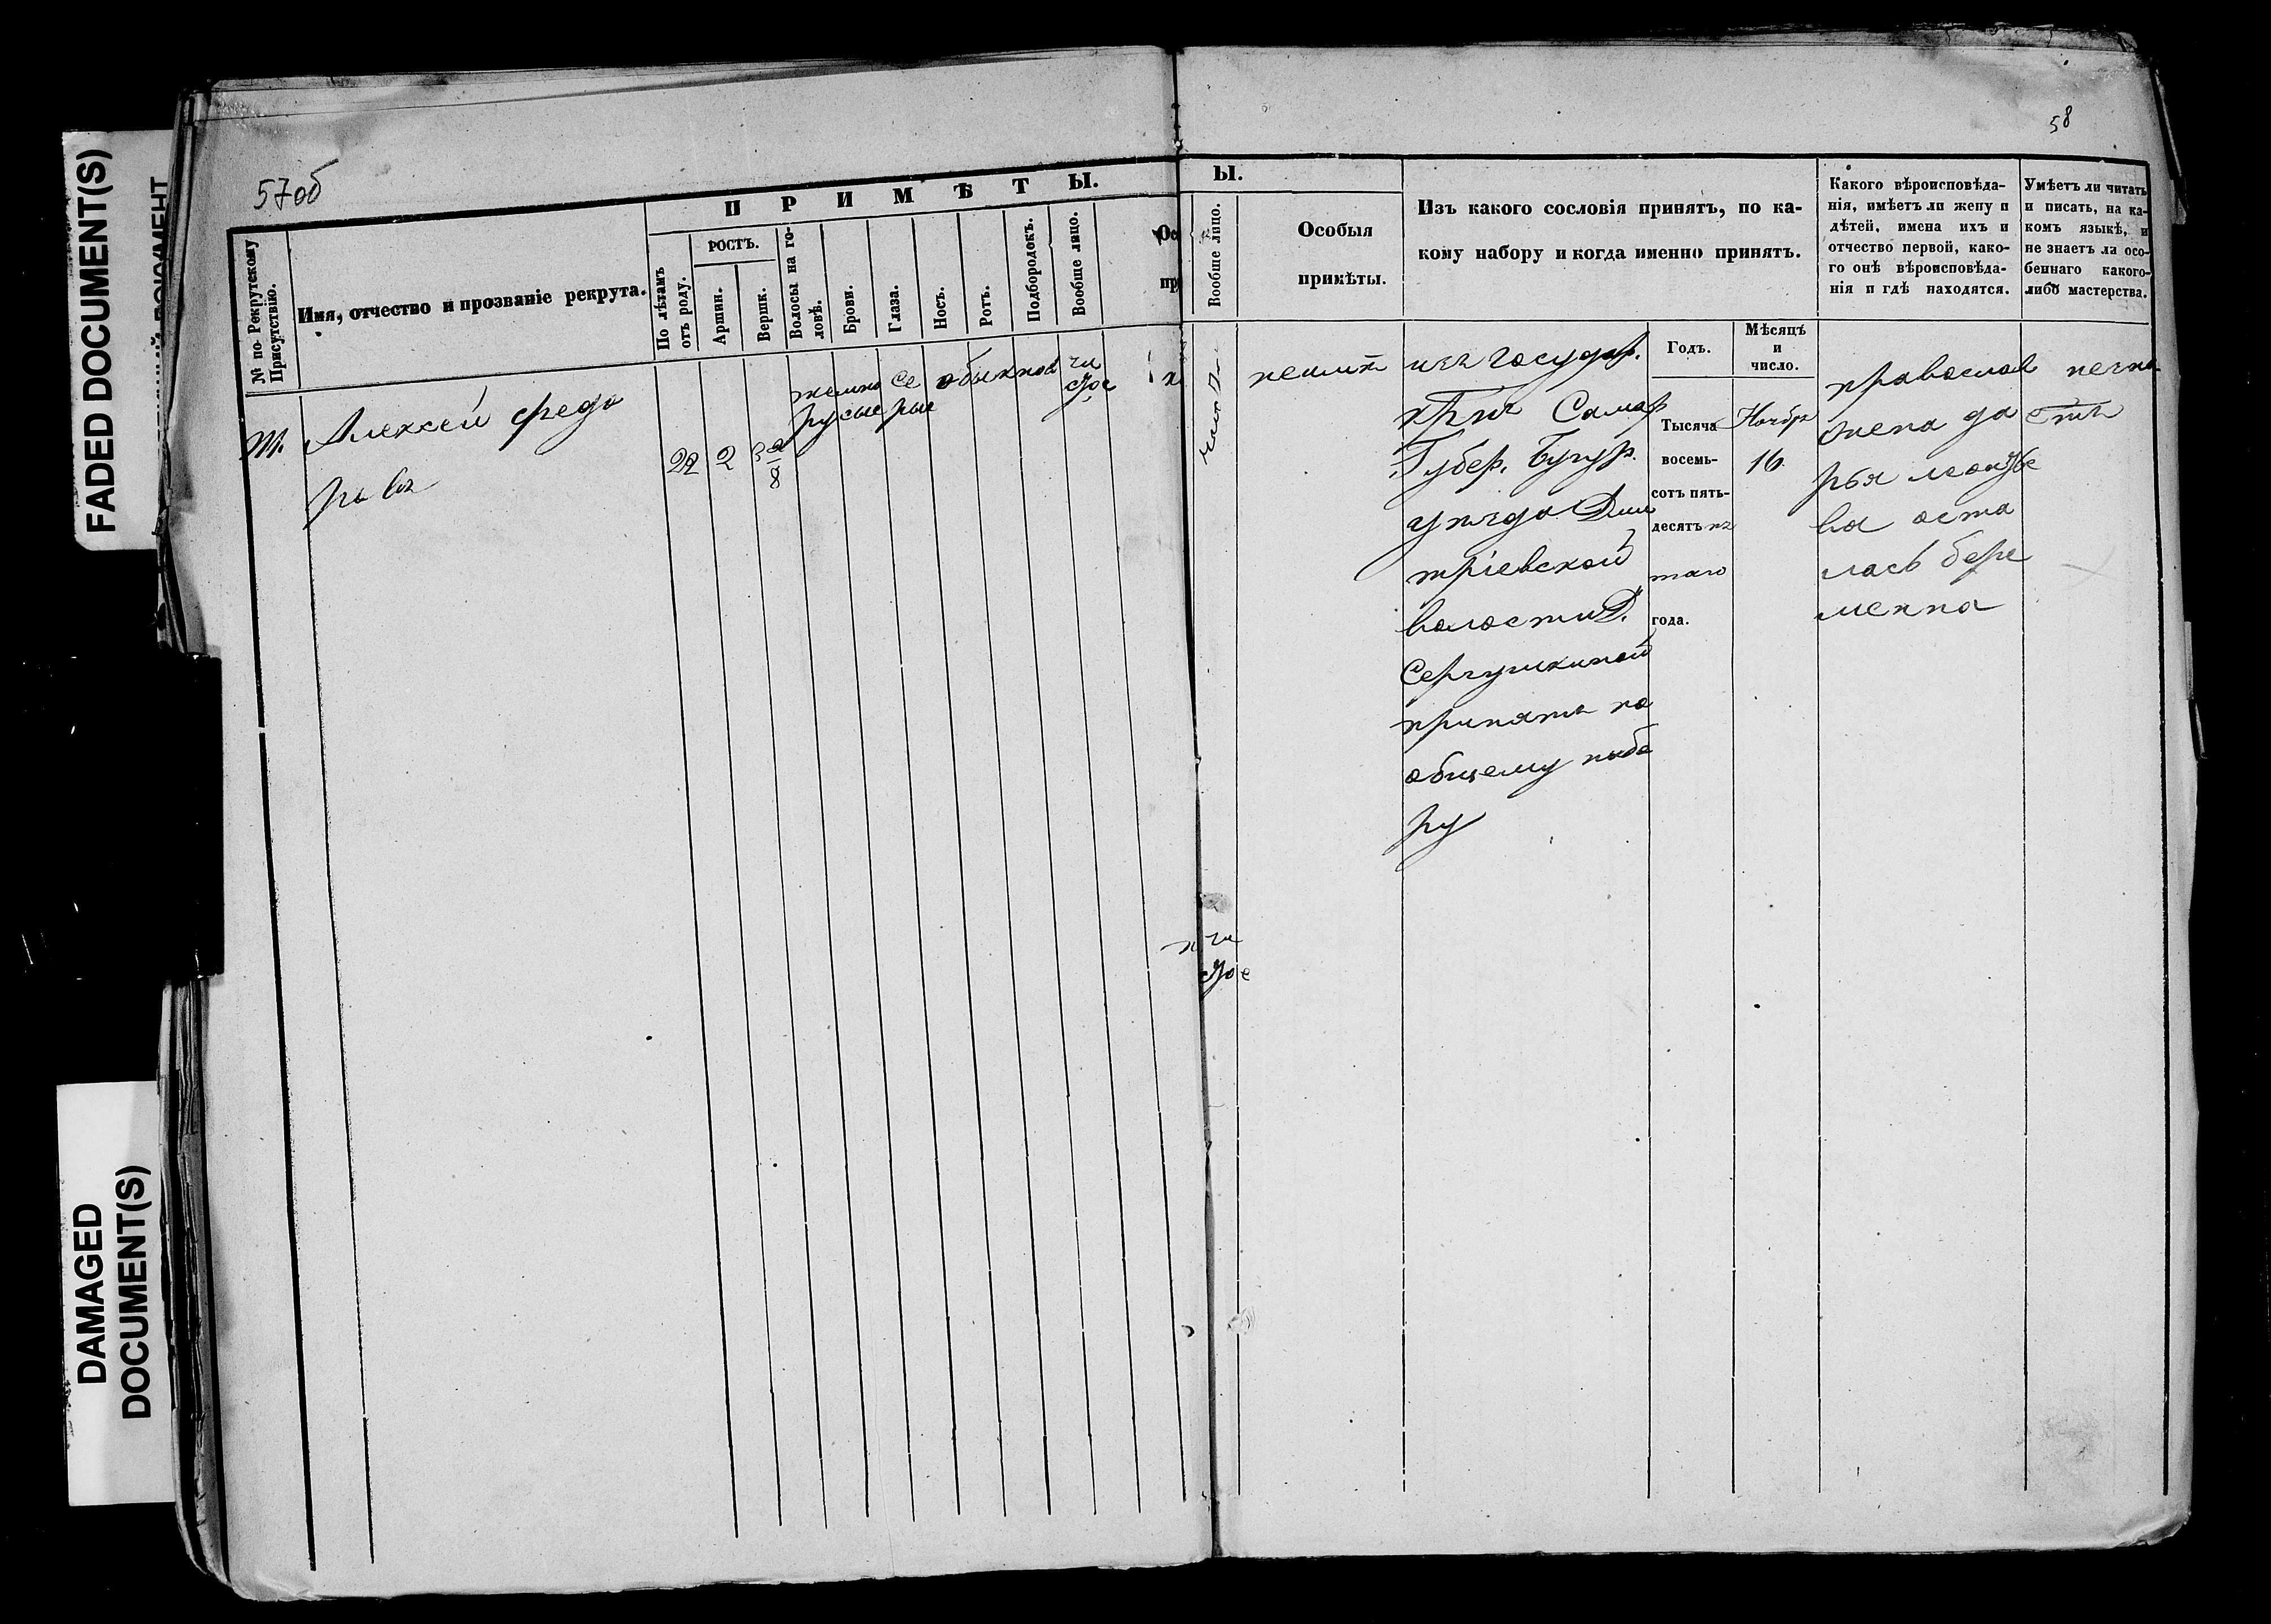 FADED DOCUMENT(S)
DAMAGED
DOCUMENT(S)
57об
58
П Р И М Ѣ Т Ы.
№ по Рекрутскому
Присутствію.
Имя, отчество и прозваніе рекрута.
По лѣтамъ
отъ роду.
РОСТЪ.
Аршин.
Вершк.
Волосы на го-
ловѣ.
Брови.
Глаза.
Носъ.
Ротъ.
Подбородокъ.
Вообще лицо.
Ос
пр
Алексей Федо
ровъ
22
2
3 2/8
темно
русые
се
рые
обыкнов
чи
стое
Ы.
Вообще лицо.
Особыя
примѣты.
Изъ какого сословія принятъ, по ка-
кому набору и когда именно принятъ.
Годъ.
Мѣсяцъ
и
число.
Какого вѣроисповѣда-
нія, имѣетъ ли жену и
дѣтей, имена ихъ и
отчество первой, како-
го онѣ вѣроисповѣда-
нія и гдѣ находятся.
Умѣетъ ли читать
и писать, на ка-
комъ языкѣ, и
не знаетъ ли осо-
беннаго какого-
либо мастерства.
неимѣт
изъ государ.
крѣс Самар
Губер. Бугур.
уезда Дми
тріевской
волости Д.
Сергушкиной
принятъ по
общему набо
ру
Тысяча
восемь-
сотъ пять-
десятъ пя
таго
года.
Ноябр
16.
православ
жена да
рья
ва оста
лась бере
менна
негра
стое